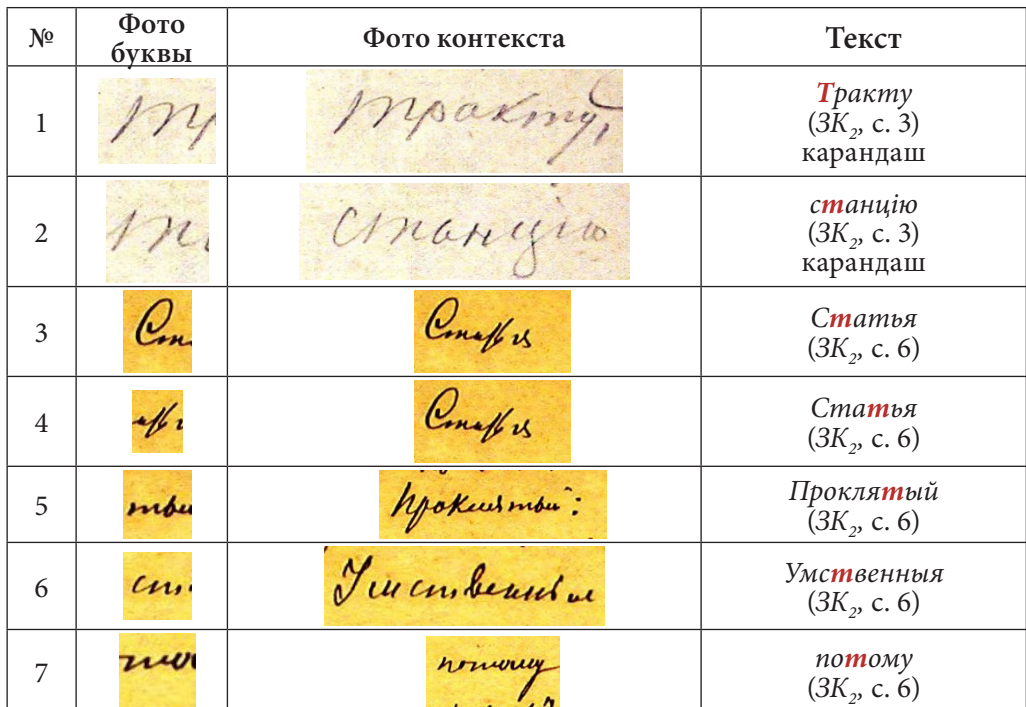 № Фото буквы Фото контекста Текст
1 Тр Тракту, Тракту
(ЗК₂, с. 3)
карандаш
2 та станцію станцію
(ЗК₂, с. 3)
карандаш
3 Ста Статья Статья
(ЗК₂, с. 6)
4 атья Статья Статья
(ЗК₂, с. 6)
5 тый Проклятый: Проклятый
(ЗК₂, с. 6)
6 ст Умственныя Умственныя
(ЗК₂, с. 6)
7 то потому потому
(ЗК₂, с. 6)